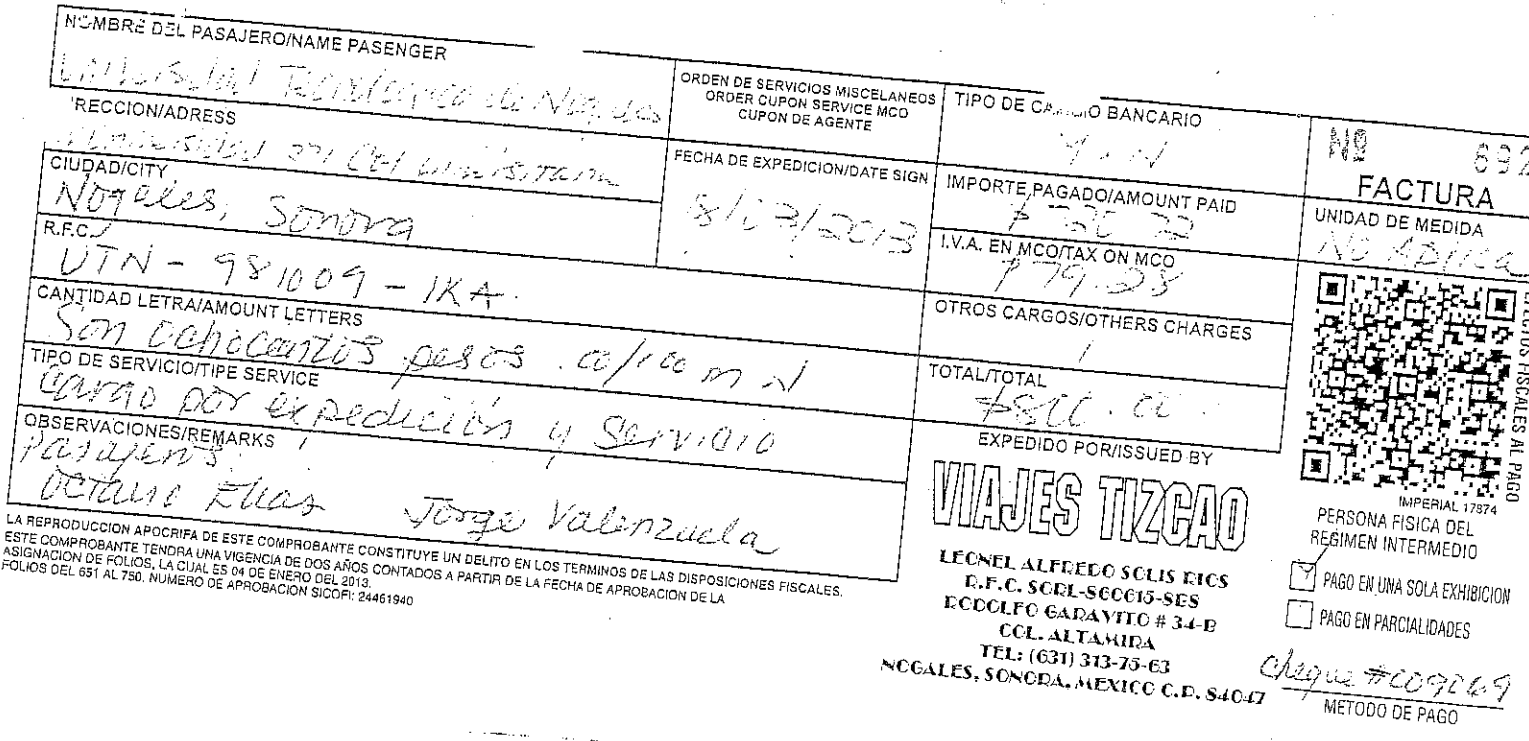 NOMBRE DEL PASAJERO/NAME PASENGER
Tecnologica de Nogales
RECCION/ADRESS
Universidad 271 Col Universitaria
CIUDAD/CITY
Nogales, Sonora
R.F.C.
UTN - 981009 - IKA.
CANTIDAD LETRA/AMOUNT LETTERS
Son ochocientos pesos .00/100 m N
TIPO DE SERVICIO/TIPE SERVICE
Cargo por expedición y Servicio
OBSERVACIONES/REMARKS
Pasajeros.
Octavio Elias Jorge Valenzuela
ORDEN DE SERVICIOS MISCELANEOS
ORDER CUPON SERVICE MCO
CUPON DE AGENTE
FECHA DE EXPEDICION/DATE SIGN
8/03/2013
TIPO DE CAMBIO BANCARIO
IMPORTE PAGADO/AMOUNT PAID
$720.72
I.V.A. EN MCO/TAX ON MCO
$79.28
OTROS CARGOS/OTHERS CHARGES
/
TOTAL/TOTAL
$800.00
Nº 692
FACTURA
UNIDAD DE MEDIDA
No Aplica
EFECTOS FISCALES AL PAGO
IMPERIAL 17874
EXPEDIDO POR/ISSUED BY
VIAJES TIZCAO
LEONEL ALFREDO SOLIS RIOS
R.F.C. SORL-S60615-SES
RODOLFO GARAVITO # 34-B
COL. ALTAMIRA
TEL: (631) 313-75-63
NOGALES, SONORA, MEXICO C.P. 84047
PERSONA FISICA DEL
REGIMEN INTERMEDIO
PAGO EN UNA SOLA EXHIBICION
PAGO EN PARCIALIDADES
Cheque #009069
METODO DE PAGO
LA REPRODUCCION APOCRIFA DE ESTE COMPROBANTE CONSTITUYE UN DELITO EN LOS TERMINOS DE LAS DISPOSICIONES FISCALES.
ESTE COMPROBANTE TENDRA UNA VIGENCIA DE DOS AÑOS CONTADOS A PARTIR DE LA FECHA DE APROBACION DE LA
ASIGNACION DE FOLIOS, LA CUAL ES 04 DE ENERO DEL 2013.
FOLIOS DEL 651 AL 750. NUMERO DE APROBACION SICOFI: 24461940